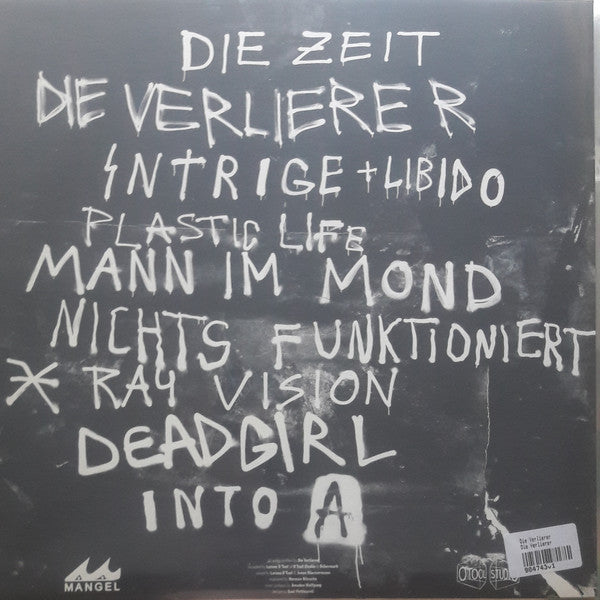 DIE ZEIT
DIE VERLIERER
INTRIGE + LIBIDO
PLASTIC LIFE
MANN IM MOND
NICHTS FUNKTIONIERT
X RAY VISION
DEADGIRL
INTO A
MANGEL
O'TOOL STUDIO
Die Verlierer
Die Verlierer
904743v1